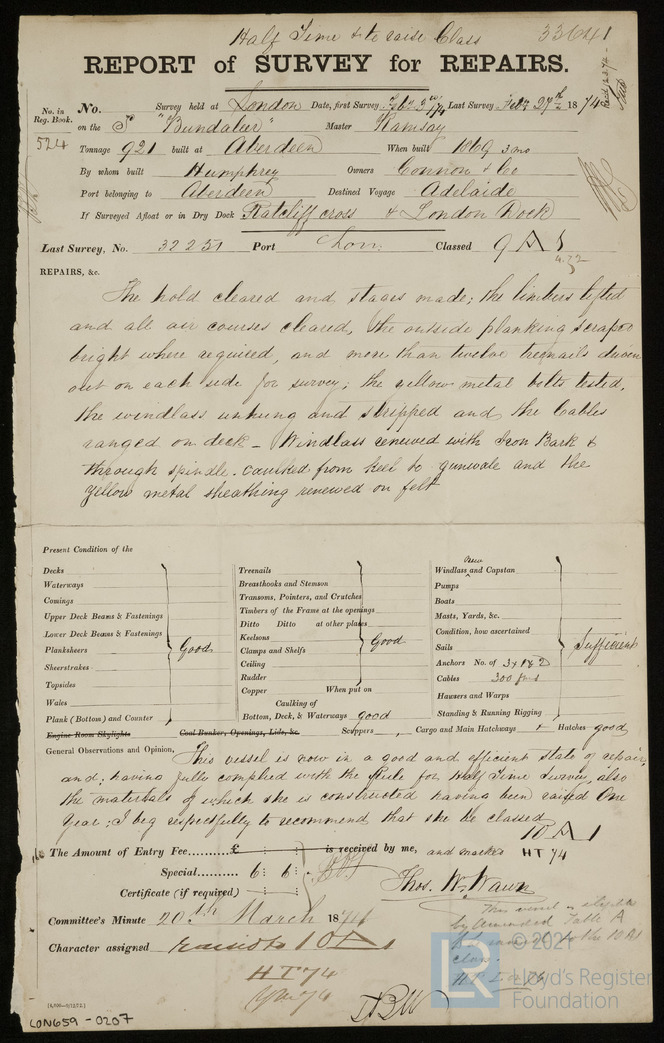 Half Time & to raise Class 33641
REPORT of SURVEY for REPAIRS.
No. in Reg. Book. 524
No. Survey held at London Date, first Survey Feb 3rd /74 Last Survey Feby 27th 1874
on the S "Bundaleer" Master Ramsay
Tonnage 921 built at Aberdeen When built 1869 3mo
By whom built Humphrey Owners Connon & Co
Port belonging to Aberdeen Destined Voyage Adelaide
If Surveyed Afloat or in Dry Dock Ratcliff cross & London Dock
Last Survey, No. 32251 Port Lon: Classed 9 A 1
4.72
REPAIRS, &c.
The hold cleared and stages made; the limbers lifted
and all air courses cleared, the outside planking scraped
bright where required, and more than twelve treenails driven
out on each side for survey; the yellow metal bolts tested,
the windlass unhung and stripped and the Cables
ranged on deck - Windlass renewed with Iron Bark &
through spindle. caulked from keel to gunwale and the
Yellow metal sheathing renewed on felt
Present Condition of the
Decks
Waterways
Comings
Upper Deck Beams & Fastenings
Lower Deck Beams & Fastenings
Planksheers Good
Sheerstrakes
Topsides
Wales
Plank (Bottom) and Counter
Engine Room Skylights
Treenails
Breasthooks and Stemson
Transoms, Pointers, and Crutches
Timbers of the Frame at the openings
Ditto Ditto at other places
Keelsons
Clamps and Shelfs Good
Ceiling
Rudder
Copper When put on
Caulking of
Bottom, Deck, & Waterways good
Coal Bunker, Openings, Lids, &c.
new
Windlass and Capstan
Pumps
Boats
Masts, Yards, &c.
Condition, how ascertained
Sails Sufficient
Anchors No. of 3 + 1 & 2
Cables 300 fms
Hawsers and Warps
Standing & Running Rigging
Scuppers, Cargo and Main Hatchways + Hatches good
General Observations and Opinion, This vessel is now in a good and efficient state of repair,
and; having fully complied with the Rule for Half Time Survey, also
the materials of which she is constructed having been raised One
Year; I beg respectfully to recommend that she be classed
10 A 1
The Amount of Entry Fee.......... £ : : is received by me, and marked HT 74
Special.......... 6 : 6 :
Certificate (if required) : :
Thos. W. Wawn
Committee's Minute 20th March 1874
Character assigned raised to 10 A 1
HT 74
YM 74
This vessel is eligible
by amended Table A
to the 10 A1
class.
LON659-0207
© 2021
Lloyd's Register
Foundation